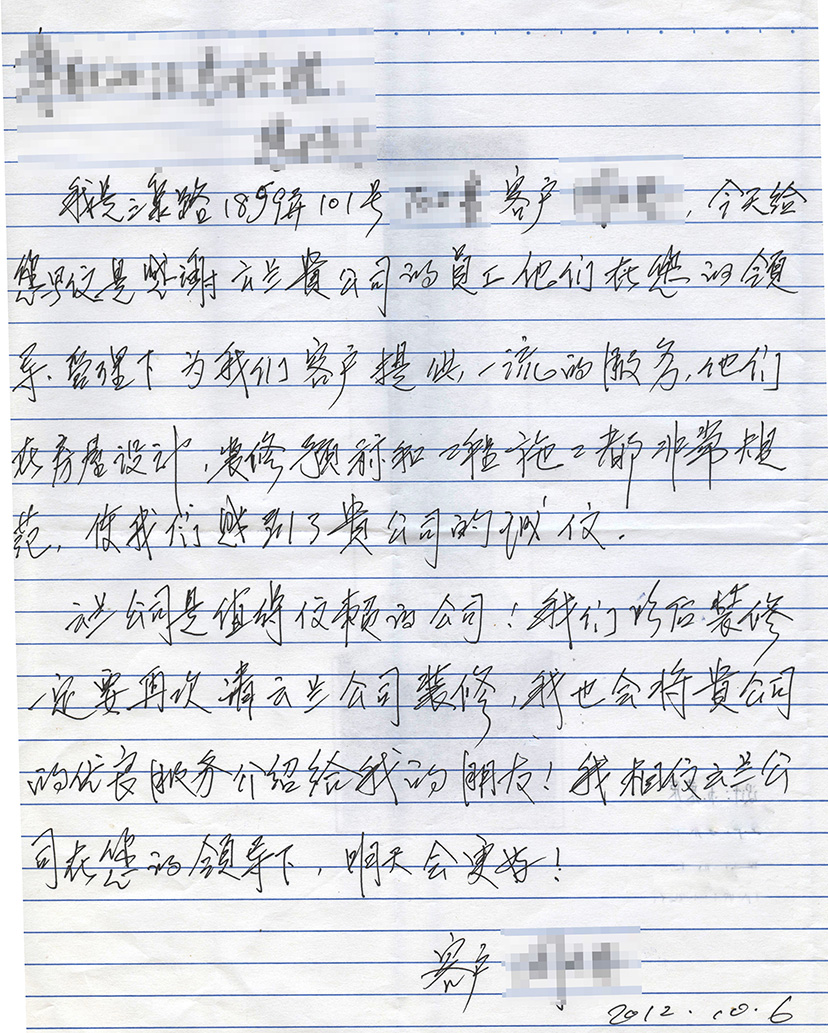 我是三泉路1859弄101号 客户 ，今天给
您写信是感谢云兰贵公司的员工他们在您的领
导、管理下为我们客户提供一流的服务，他们
在房屋设计，装修预标和工程施工都非常规
范，使我们贱到了貴公司的诚信．
云兰公司是值得信赖的公司！我们以后装修
一定要再次请云兰公司装修，我也会将貴公司
的优良服务介绍给我的朋友！我相信云兰公
司在您的领导下，明天会更好！
客户
2012．10．6